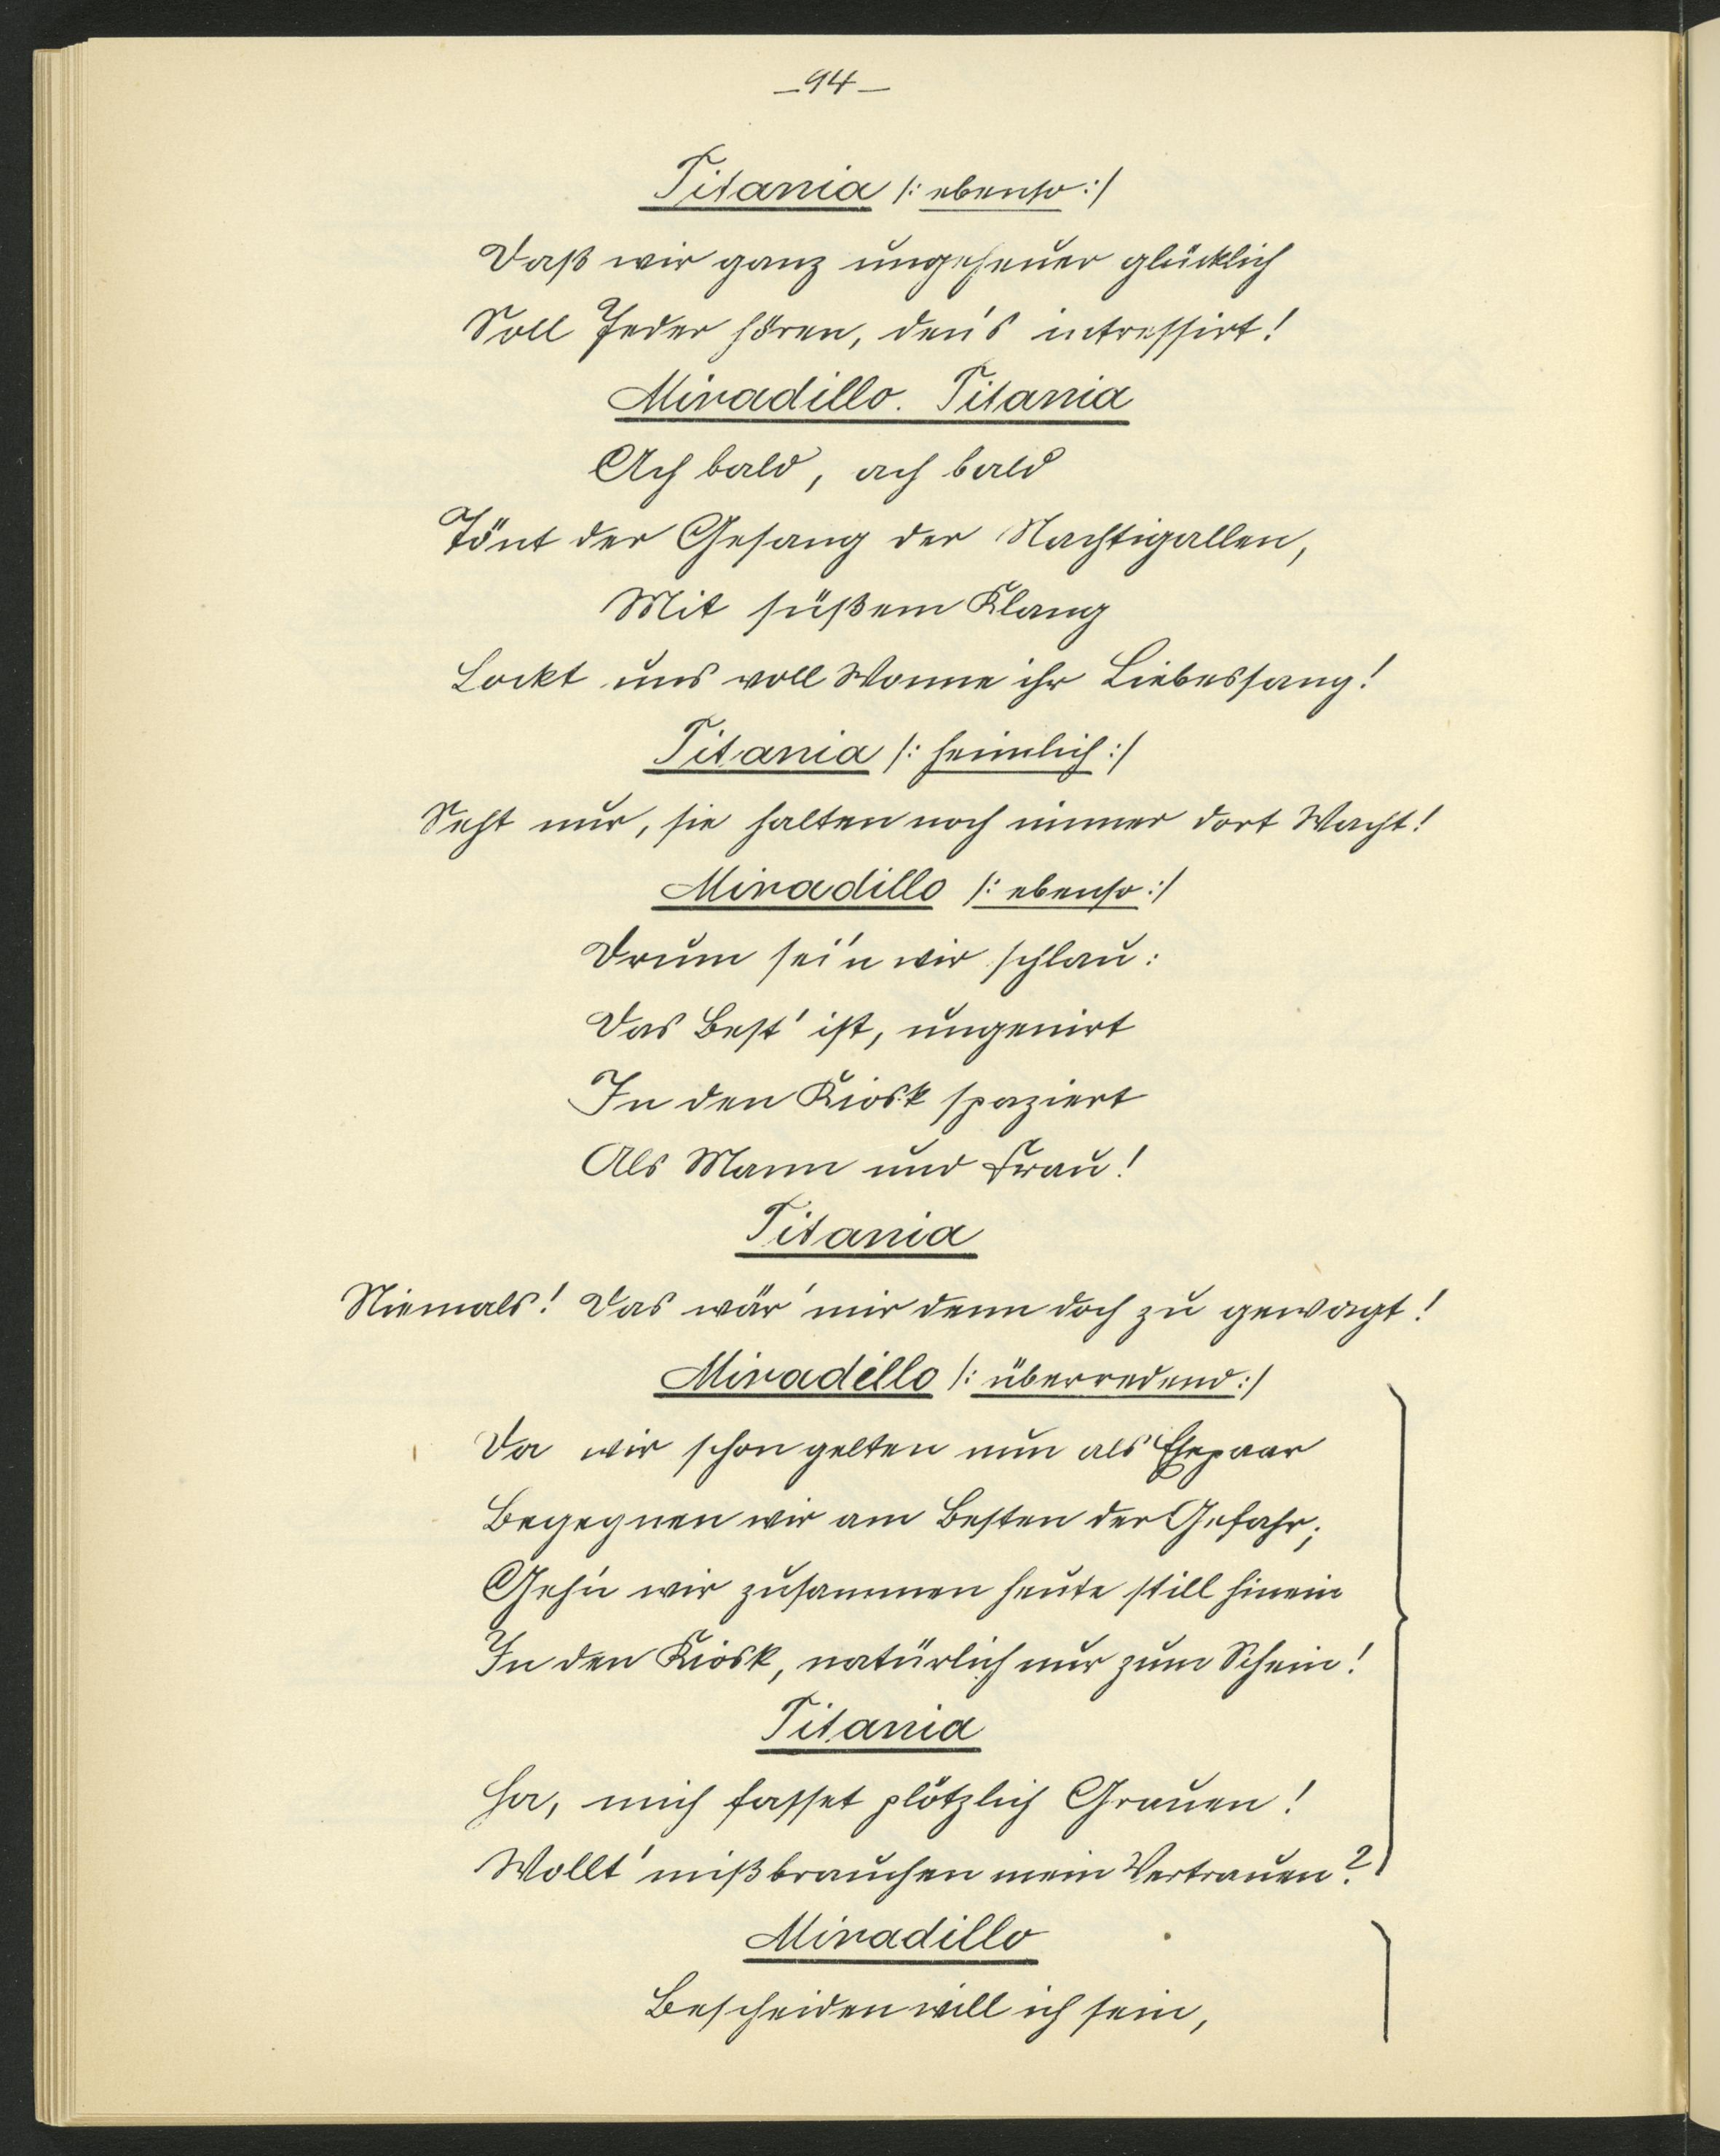 –94–
Titania /: ebenso :/
Daß wir ganz ungeheuer glücklich
Soll Jeder hören, den's intressirt!
Miradillo. Titania
Ach bald, ach bald
Tönt der Gesang der Nachtigallen,
Mit süßem Klang
Lockt uns voll Wonne ihr Liebessang!
Titania /: heimlich :/
Seht nur, sie halten noch immer dort Wacht!
Miradillo /: ebenso :/
Drum sei'n wir schlau:
Das Best' ist, ungenirt
In den Kiosk spaziert
Als Mann und Frau!
Titania
Niemals! Das wär' mir denn doch zu gewagt!
Miradillo /: überredend :/
Da wir schon gelten nun als Ehepaar
Begegnen wir am Besten der Gefahr;
Geh'n wir zusammen heute still hinein
In den Kiosk, natürlich nur zum Schein!
Titania
Ha, mich fasset plötzlich Grauen!
Wollt' mißbrauchen mein Vertrauen?
Miradillo
Bescheiden will ich sein,